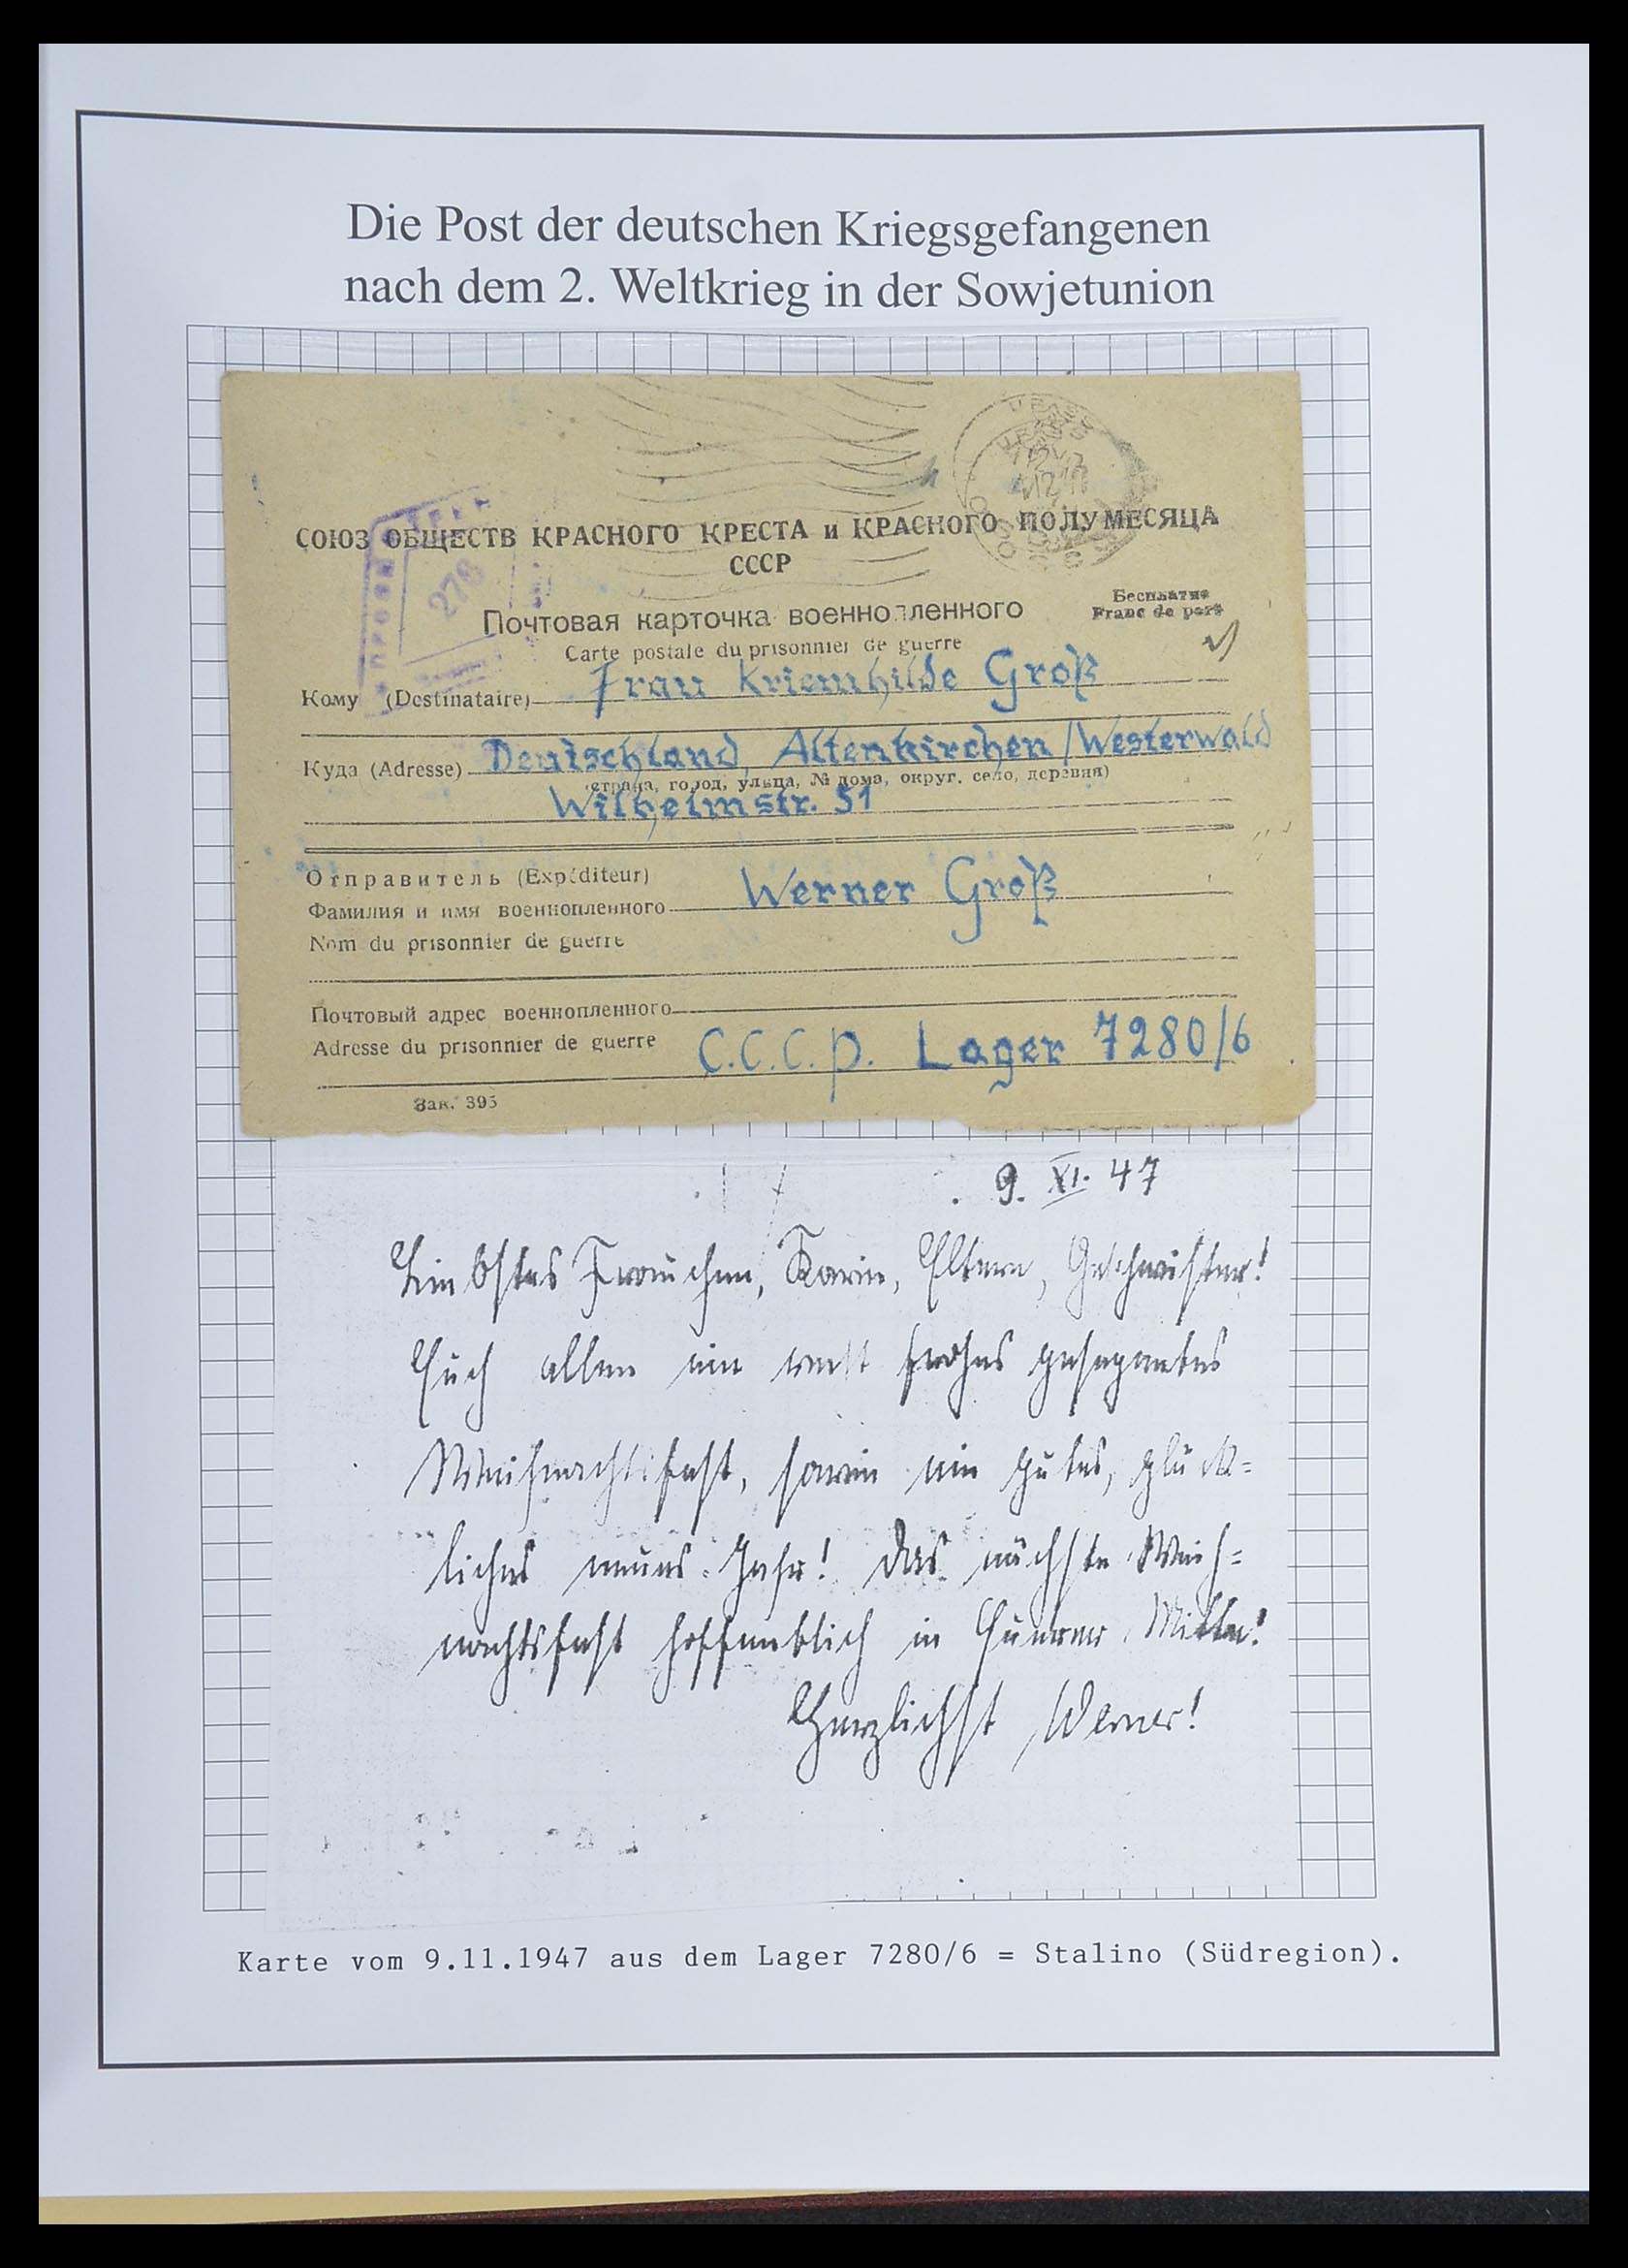 Die Post der deutschen Kriegsgefangenen
nach dem 2. Weltkrieg in der Sowjetunion
СОЮЗ ОБЩЕСТВ КРАСНОГО КРЕСТА и КРАСНОГО ПОЛУМЕСЯЦА
СССР
Почтовая карточка военнопленного
Бесплатно
Franc de port
Carte postale du prisonnier de guerre
276
Кому (Destinataire) Frau Kriemhilde Groß
Куда (Adresse) Deutschland, Altenkirchen/Westerwald
(страна, город, улица, № дома, округ, село, деревня)
Wilhelmstr. 51
Отправитель (Expéditeur)
Фамилия и имя военнопленного Werner Groß
Nom du prisonnier de guerre
Почтовый адрес военнопленного
Adresse du prisonnier de guerre C.C.C.P. Lager 7280/6
Зак. 395
9. XI. 47
Liebstes Frauchen, Karin, Eltern, Geschwister!
Euch allen ein recht frohes gesegnetes
Weihnachtsfest, sowie ein gutes, glück=
liches neues Jahr! Das nächste Weih=
nachtsfest hoffentlich in Euerer Mitte!
Herzlichst Werner!
Karte vom 9.11.1947 aus dem Lager 7280/6 = Stalino (Südregion).